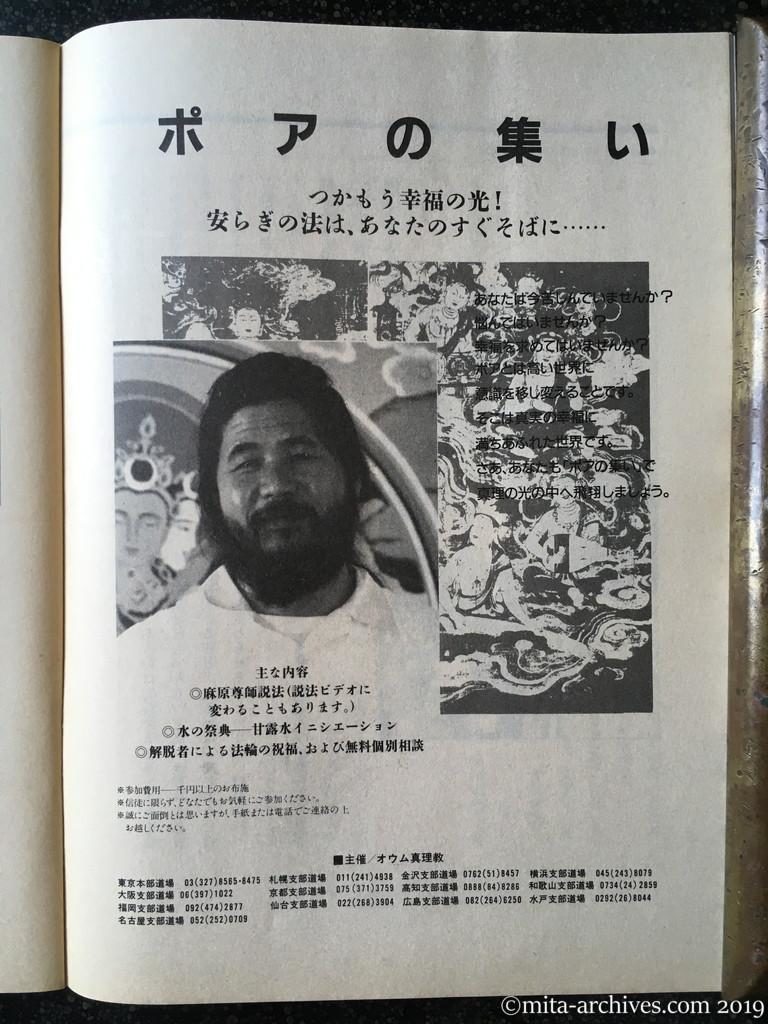 ポアの集い
つかもう幸福の光！
安らぎの法は、あなたのすぐそばに……
あなたは今苦しんでいませんか？
悩んではいませんか？
幸福を求めてはいませんか？
ポアとは高い世界に
意識を移し変えることです。
そこは真実の幸福に
満ちあふれた世界です。
さあ、あなたも「ポアの集い」で
真理の光の中へ飛翔しましょう。
主な内容
◎麻原尊師説法（説法ビデオに
変わることもあります。）
◎水の祭典――甘露水イニシエーション
◎解脱者による法輪の祝福、および無料個別相談
※参加費用――千円以上のお布施
※信徒に限らず、どなたでもお気軽にご参加ください。
※誠にご面倒とは思いますが、手紙または電話でご連絡の上
お越しください。
■主催／オウム真理教
東京本部道場 03(327)8565・8475 札幌支部道場 011(241)4938 金沢支部道場 0762(51)8457 横浜支部道場 045(243)8079
大阪支部道場 06(397)1022 京都支部道場 075(371)3759 高知支部道場 0888(84)8286 和歌山支部道場 0734(24)2859
福岡支部道場 092(474)2877 仙台支部道場 022(268)3904 広島支部道場 082(264)6250 水戸支部道場 0292(26)8044
名古屋支部道場 052(252)0709
©mita-archives.com 2019